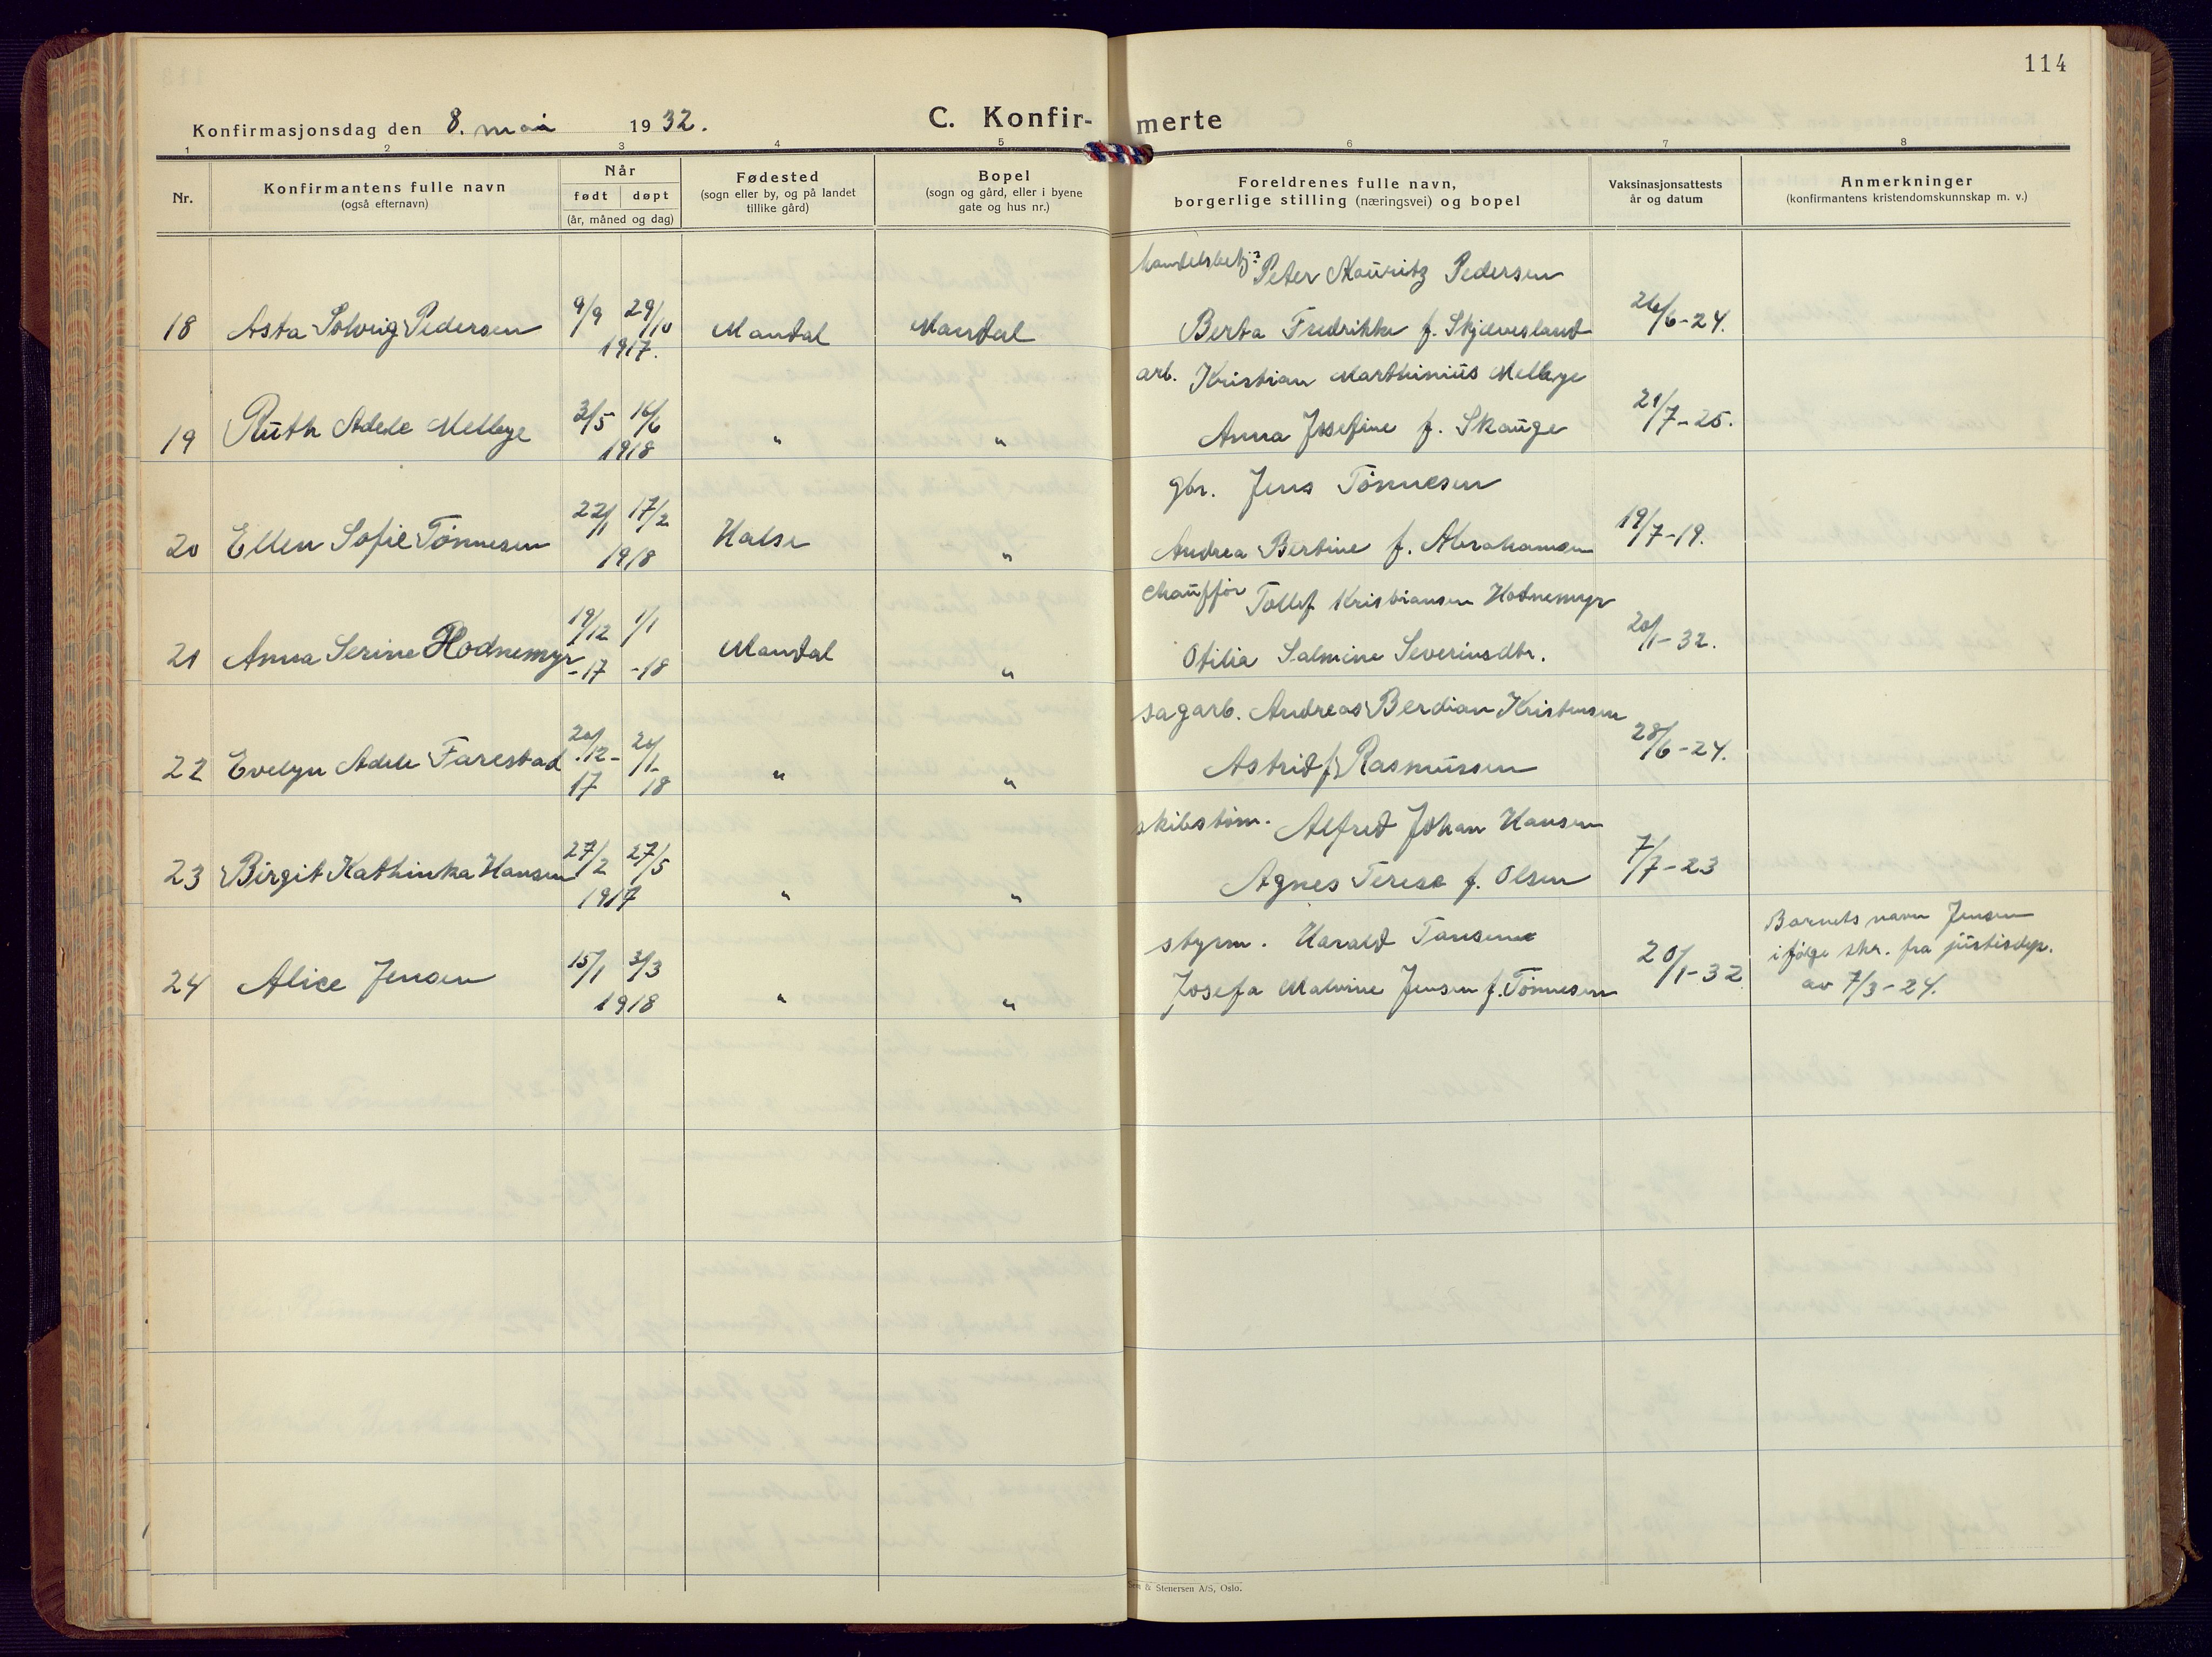 114
Konfirmasjonsdag den 8. mai 1932.
C. Konfir- merte
1 2 3 4 5 6 7 8
Nr.
Konfirmantens fulle navn
(også efternavn)
Når
født døpt
(år, måned og dag)
Fødested
(sogn eller by, og på landet
tillike gård)
Bopel
(sogn og gård, eller i byene
gate og hus nr.)
Foreldrenes fulle navn,
borgerlige stilling (næringsvei) og bopel
Vaksinasjonsattests
år og datum
Anmerkninger
(konfirmantens kristendomskunnskap m. v.)
handelsbetj. Peter Mauritz Pedersen
18 Asta Solveig Pedersen 9/9 29/10 Mandal Mandal Berta Fredrikke f. Skjævesland 26/6-24.
1917.
arb. Kristian Marthinius Melbye
19 Ruth Adele Melbye 3/5 16/6 " " Anna Josefine f. Skauge 21/7-25.
1918
gbr. Jens Tønnesen
20 Ellen Sofie Tønnesen 22/1 17/2 Halse " Andrea Bertine f. Abrahamsen 19/7-19.
1918
chauffør Tollef Kristiansen Hodnemyr
21 Anna Serine Hodnemyr 19/12 1/1 Mandal " Otilia Salmine Severinsdtr. 20/1-32.
-17 -18
sagarb. Andreas Berdian Kristensen
22 Evelyn Adele Farestad 20/12- 20/1- " " Astrid f. Rasmussen 28/6-24.
17 18
skibstøm. Alfred Johan Hansen
23 Birgit Kathinka Hansen 27/2 27/5 " " Agnes Terese f. Olsen 7/7-23
1917
styrm. Harald
24 Alice Jensen 15/1 3/3 " " Josefa Malvine Jensen f. Tønnesen 20/1-32
1918
Barnets navn Jensen
ifølge skr. fra justisdep.
av 7/3-24.
& Stenersen A/S, Oslo.